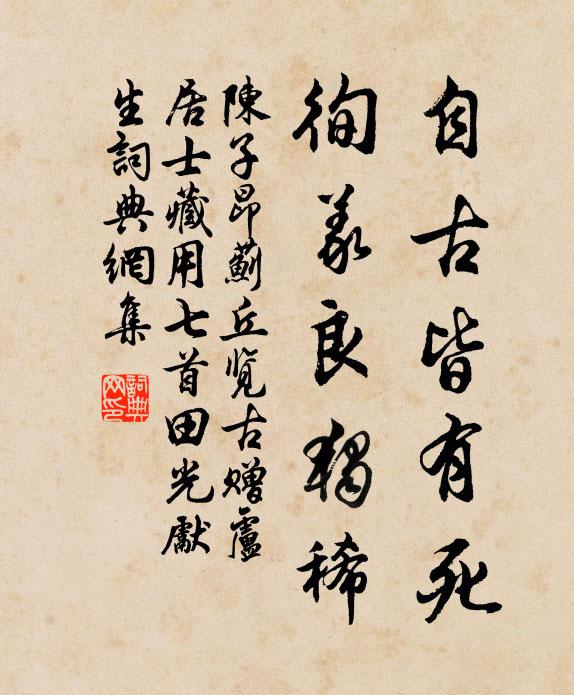 自古皆有死
徇義良獨稀
陳子昂薊丘览古赠盧
居士藏用七首田光獻
生詞典網集
詞典
网印